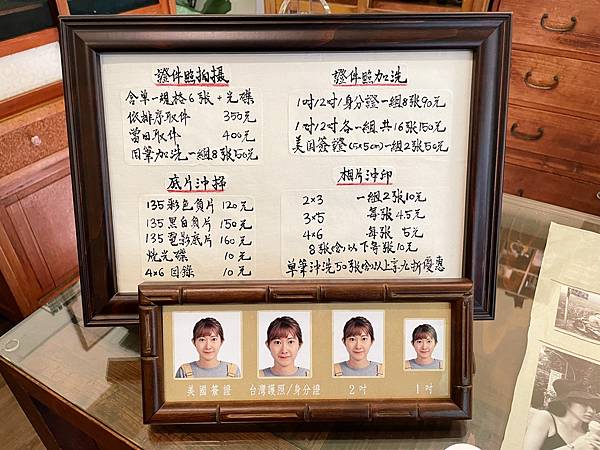 證件照拍攝
含單一規格6張+光碟
依排序取件 350元
當日取件 400元
同筆加洗一組8張50元
證件照加洗
1吋/2吋/身分證一組8張90元
1吋/2吋各一組共16張150元
美国簽證(5x5cm)一組2張50元
底片沖掃
135彩色負片 120元
135黑白負片 150元
135電影底片 160元
燒光碟 10元
4x6目錄 10元
相片沖印
2x3 一組2張10元
3x5 每張4.5元
4x6 每張5元
8張(含)以下每張10元
單筆沖洗50張(含)以上享九折優惠
美國簽證
台灣護照/身分證
2吋
1吋